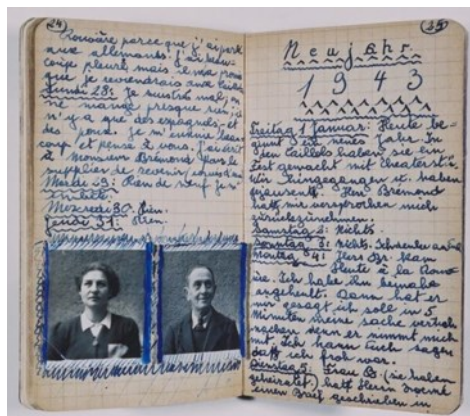 24
Rouvière parce que j'ai parlé
aux allemands. J'ai beau-
coup pleuré mais il m'a promis
que je reviendrais aux Caillols
Lundi 28: Je m'ennuie mal, on
ne mange presque rien, il
n'y a que des espagnols et
des poux. Je m'ennuie beau-
coup et pense à vous. J'ai écrit
à Monsieur Brémond pour le
supplier de revenir
Mardi 29: Rien de neuf
Mercredi 30: Rien.
Jeudi 31: Rien.
25
Neujahr
1943
Freitag 1 Januar: Heute be-
ginnt ein neues Jahr. In
den Caillols haben sie ein
Fest gemacht mit Theaterst.
Wir hingegangen u. haben
Herr Brémond
hatt mir versprochen mich
zurückzunehmen.
Samstag 2: Nichts.
Sonntag 3: Nichts.
Montag 4: Herr Br. kam
Heute à la Rou-
vière. Ich habe ihn beinahe
angeheult. Dann hat er
mir gesagt ich soll in 5
Minuten meine sache
machen denn er nimmt mich
mit. Ich kann Euch sagen
daß ich froh war.
Dienstag 5: Frau B. (sie haben
geheiratet) hatt Herrn
einen Brief geschrieben in